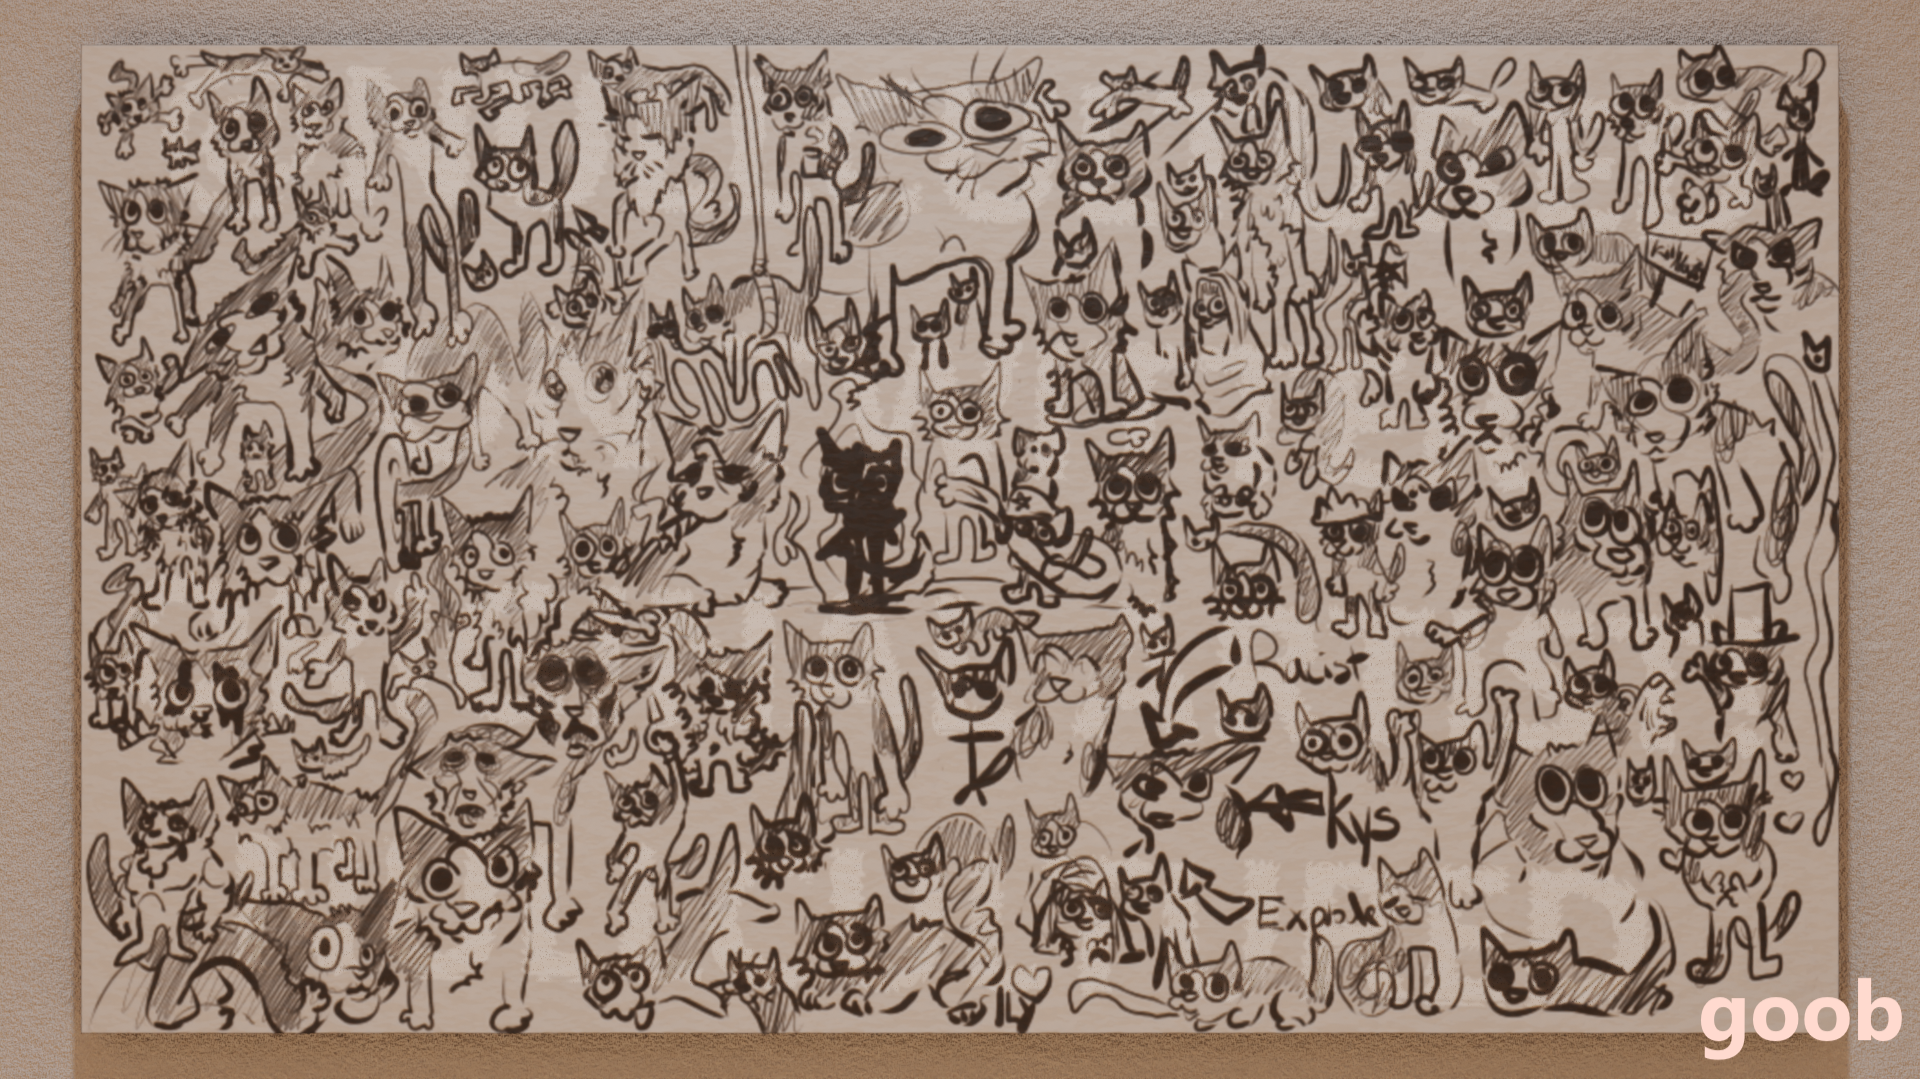 Racist
kys
Explode
ILY
goob